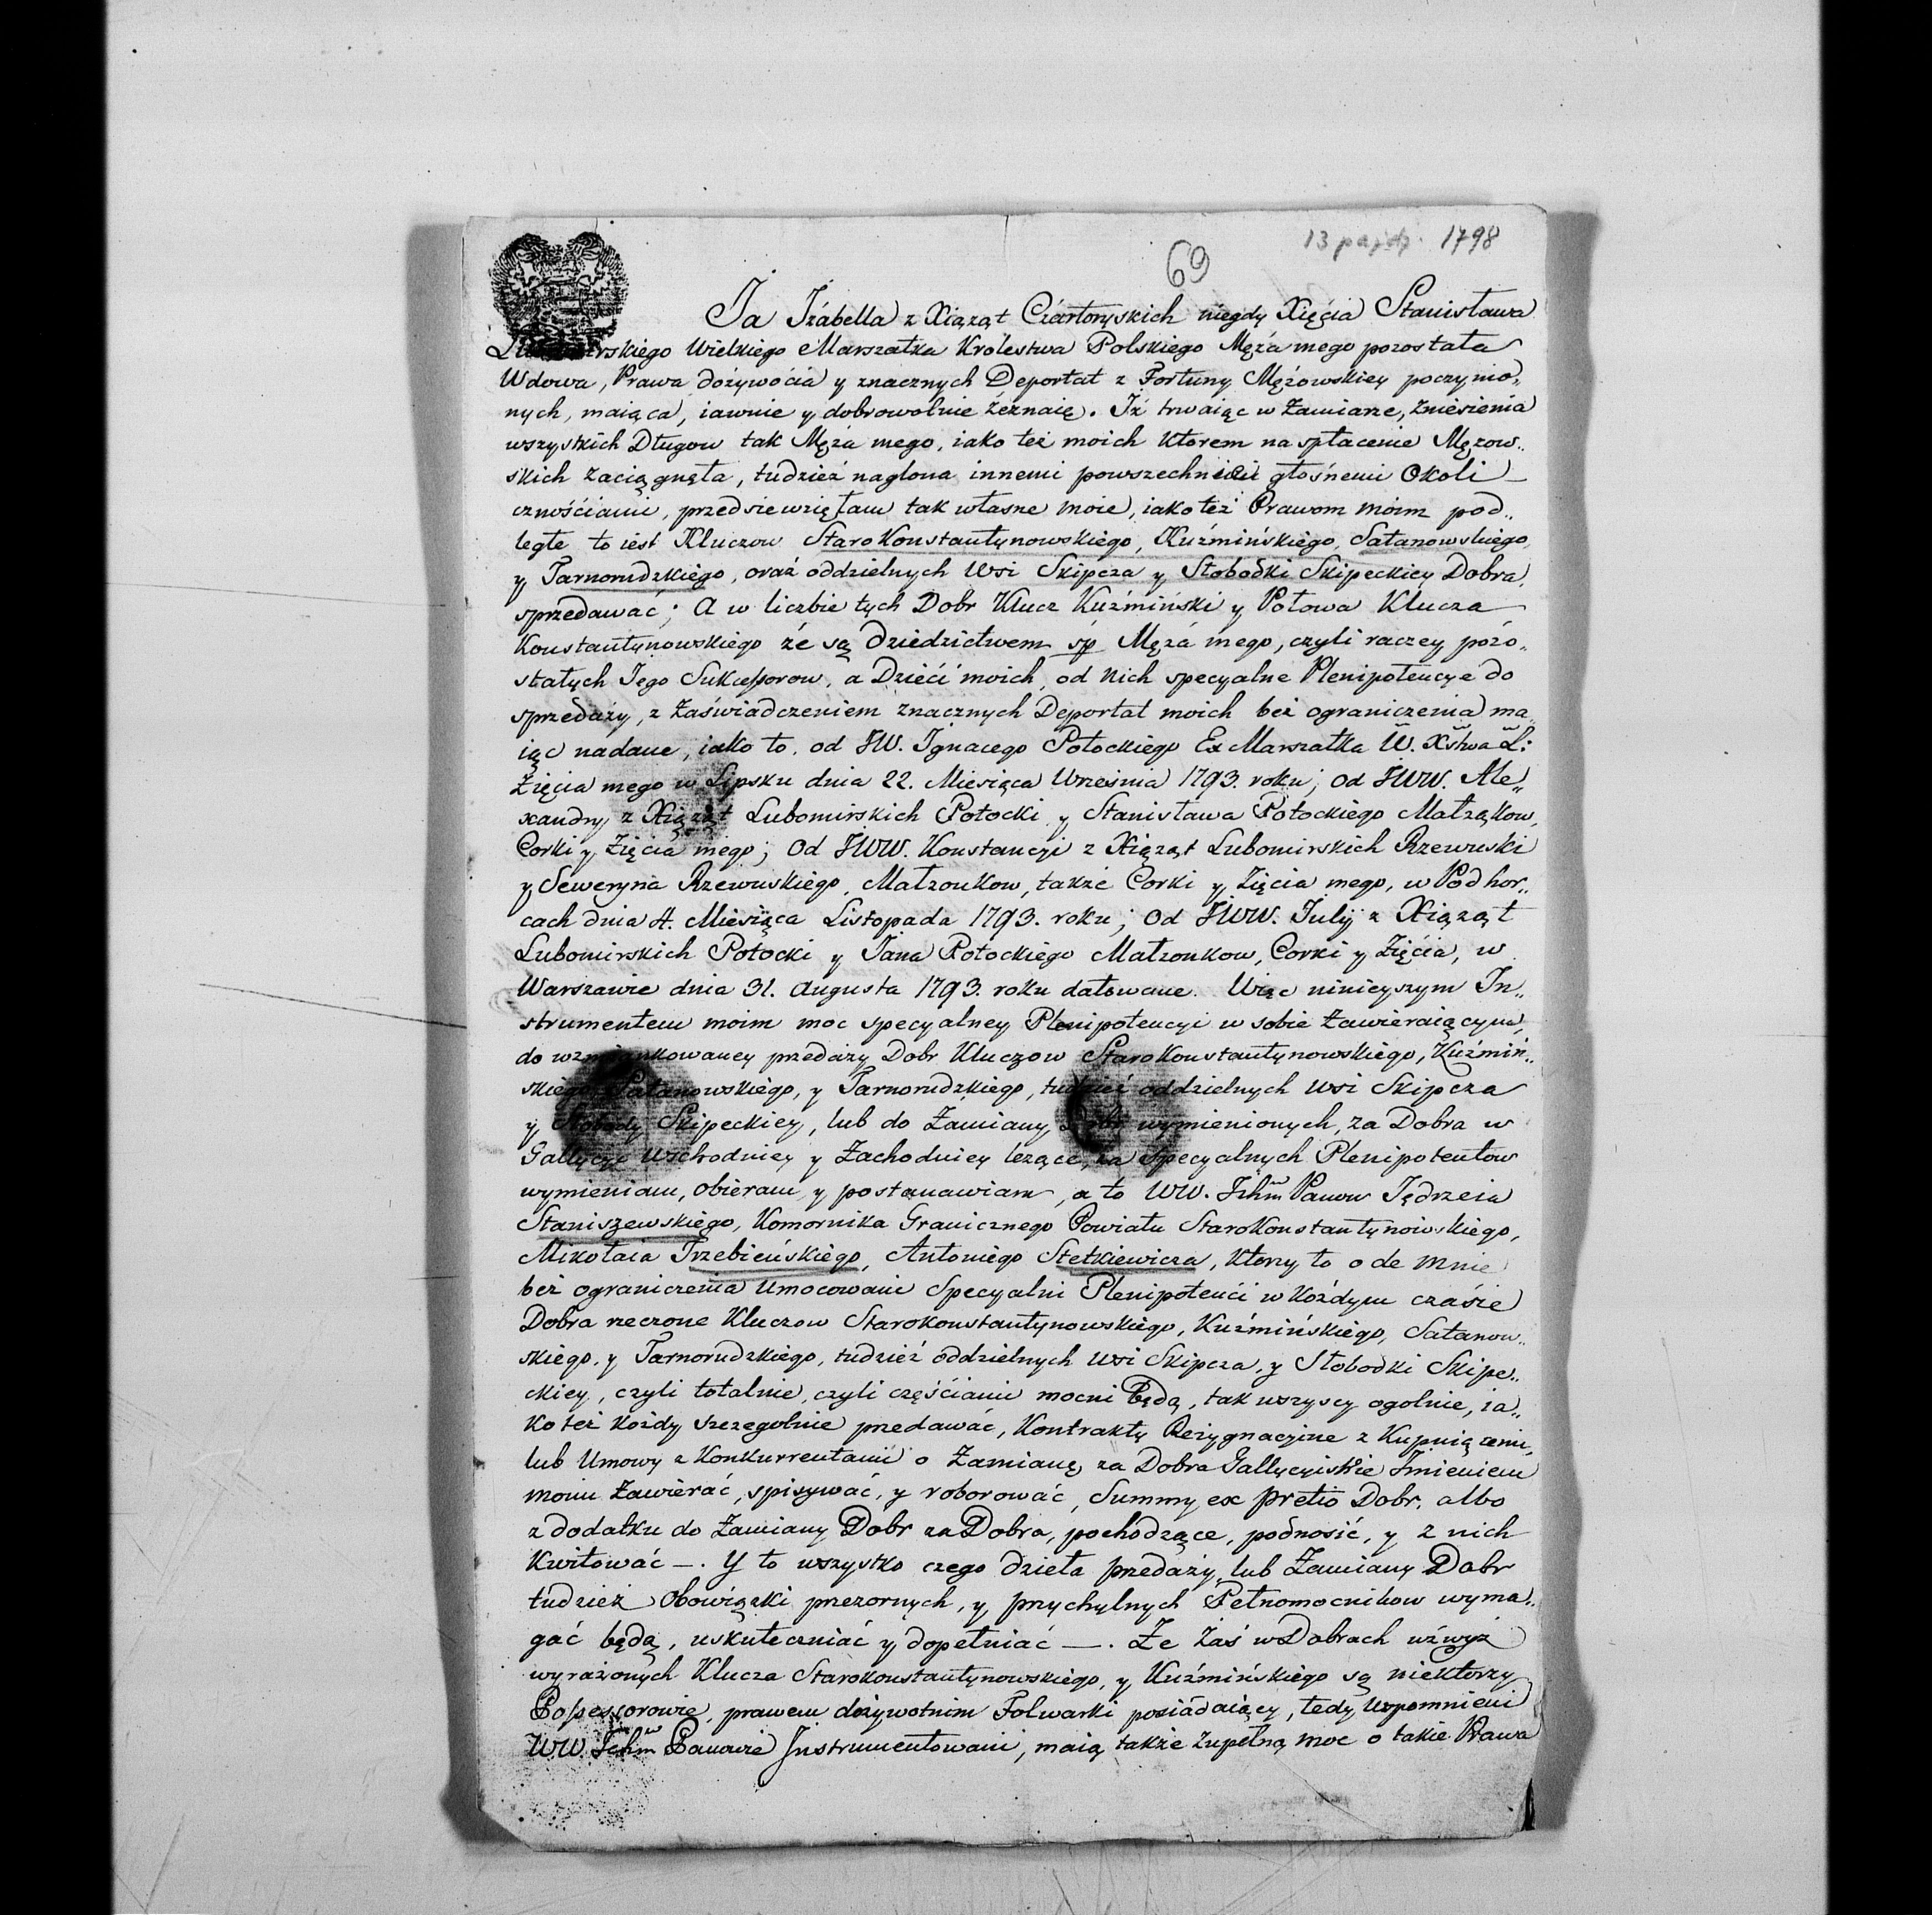 13 paźdz. 1798
69
Ja Jzabella z Xiąząt Czartoryskich niegdy Xięcia Stanisława
Lubomirskiego Wielkiego Marszałka Krolestwa Polskiego Męża mego pozostała
Wdowa, Prawa dożywocia y znacznych Deportat z Fortuny Mężowskiey poczynio„
nych, maiąca, iawnie y dobrowolnie żeznaię. Iż trwaiąc w Zamiarze, Zniesienia
wszystkich Długow tak Męża mego, iako też moich ktorem na spłacenie Męzow„
skich zaciągnęła, tudzież naglona innemi powszechnie głośnemi Okoli
cznościami, przedsiewzięłam tak własne moie, iako też Prawom moim pod„
ległe to iest Kluczow StaroKonstantynowskiego, Kuźmińskiego, Satanowskiego,
y Tarnorudzkiego, oraz oddzielnych Wsi Skipcza y Słobodki Skipeckiey Dobra,
sprzedawać; A w liczbie tych Dobr Klucz Kuźmiński y Połowa Klucza
Konstantynowskiego że są Dziedzictwem śp Męża mego, czyli raczey pozo„
stałych Jego Sukcessorow, a Dzieci moich, od nich specyalne Plenipotencye do
sprzedaży, z Zaświadczeniem znacznych Deportat moich bez ograniczenia ma„
iąc nadane, iako to, od JW. Ignacego Potockiego Ex Marszałka W. Xstwa L:
Zięcia mego w Lipsku dnia 22. Miesiąca Września 1793. roku; od JWW. Ale„
xandry z Xiąząt Lubomirskich Potocki y Stanisława Potockiego Małżąkow,
Corki y Zięcia mego; Od JWW. Konstancyi z Xiąząt Lubomirskich Rzewuski
y Seweryna Rzewuskiego, Małzonkow, także Corki y Zięcia mego, w Podhor„
cach dnia 4. Miesiąca Listopada 1793. roku; Od JWW. Julij z Xiąząt
Lubomirskich Potocki y Jana Potockiego Małzonkow, Corki y Zięcia, w
Warszawie dnia 31. Augusta 1793. roku datowane. Więc ninieyszym In„
strumentem moim moc specyalney Plenipotencyi w sobie Zawieraiącym,
do wzmiankowaney przedaży Dobr Kluczow StaroKonstantynowskiego, Kuźmiń„
skiego, Satanowskiego, y Tarnorudzkiego, tudzież oddzielnych Wsi Skipcza
y Słobody Skipeckiey, lub do Zamiany Dobr wymienionych, za Dobra w
Gallicyi Wschodniey y Zachodniey leżące, za Specyalnych Plenipotentow
wymieniam, obieram y postanawiam, a to WW. Jchm Panow Jędrzeia
Staniszewskiego, Komornika Granicznego Powiatu StaroKonstantynowskiego,
Mikołaia Trzebieńskiego, Antoniego Stetkiewicza, Ktorzy to ode mnie
bez ograniczenia Umocowani Specyalni Plenipotenci w Każdym czasie
Dobra rzeczone Kluczow Starokonstantynowskiego, Kuźmińskiego, Satanow„
skiego, y Tarnorudzkiego, tudzież oddzielnych Wsi Skipcza, y Słobodki Skipe„
ckiey, czyli totalnie, czyli częściami mocni będą, tak wszyscy ogolnie, ia„
ko też każdy szczegolnie przedawać, Kontrakty Rezygnacyine z Kupuiącemi,
lub Umowy z Konkurrentami o Zamianę za Dobra Gallicyiskie Imieniem
moim Zawierać, spisywać, y roborować, Summy ex pretio Dobr, albo
z dodatku do Zamiany Dobr za Dobra, pochodzące, podnosić, y z nich
Kwitować —. Y to wszystko czego dzieła przedaży, lub Zamiany Dobr
tudzież Obowiązki przezornych, y przychylnych Pełnomocnikow wyma„
gać będą, uskuteczniać y dopełniać —. Że Zaś w Dobrach wżwyż
wyrażonych Klucza Starokonstantynowskiego, y Kuźmińskiego są niektorzy
Possessorowie, prawem dożywotnim Folwarki posiadaiący, tedy Wspomnieni
WW. Jchm Panowie Instrumentowani, maią także zupełną moc o takie Prawa